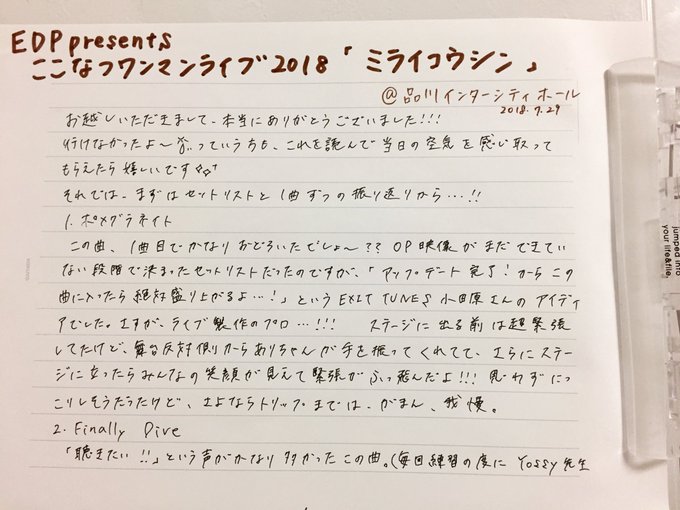 EDP presents
ここなつワンマンライブ2018「ミライコウシン」
@品川インターシティホール
2018.7.29
お越しいただきまして、本当にありがとうございました!!!
行けなかったよ〜っていう方も、これを読んで当日の空気を感じ取って
もらえたら嬉しいです
それでは、まずはセットリストと1曲ずつの振り返りから…!!
1. ポメグラネイト
この曲、1曲目でかなりおどろいたでしょ〜?? OP映像がまだできてい
ない段階で決まったセットリストだったのですが、「アップデート完了!からこの
曲に入ったら絶対盛り上がるよ…!」というEXIT TUNES 小田原さんのアイディ
アでした。さすが、ライブ製作のプロ…!!! ステージに出る前は超緊張
してたけど、舞台反対側からありちゃんが手を振ってくれてて、さらにステー
ジに立ったらみんなの笑顔が見えて緊張がふっ飛んだよ!!! 思わずにっ
こりしそうだったけど、さよならトリップまでは、がまん、我慢。
2. Finally Dive
「聴きたい!!」という声がかなり多かったこの曲。(毎回練習の度に Yossy先生
jumped into
your life&file,